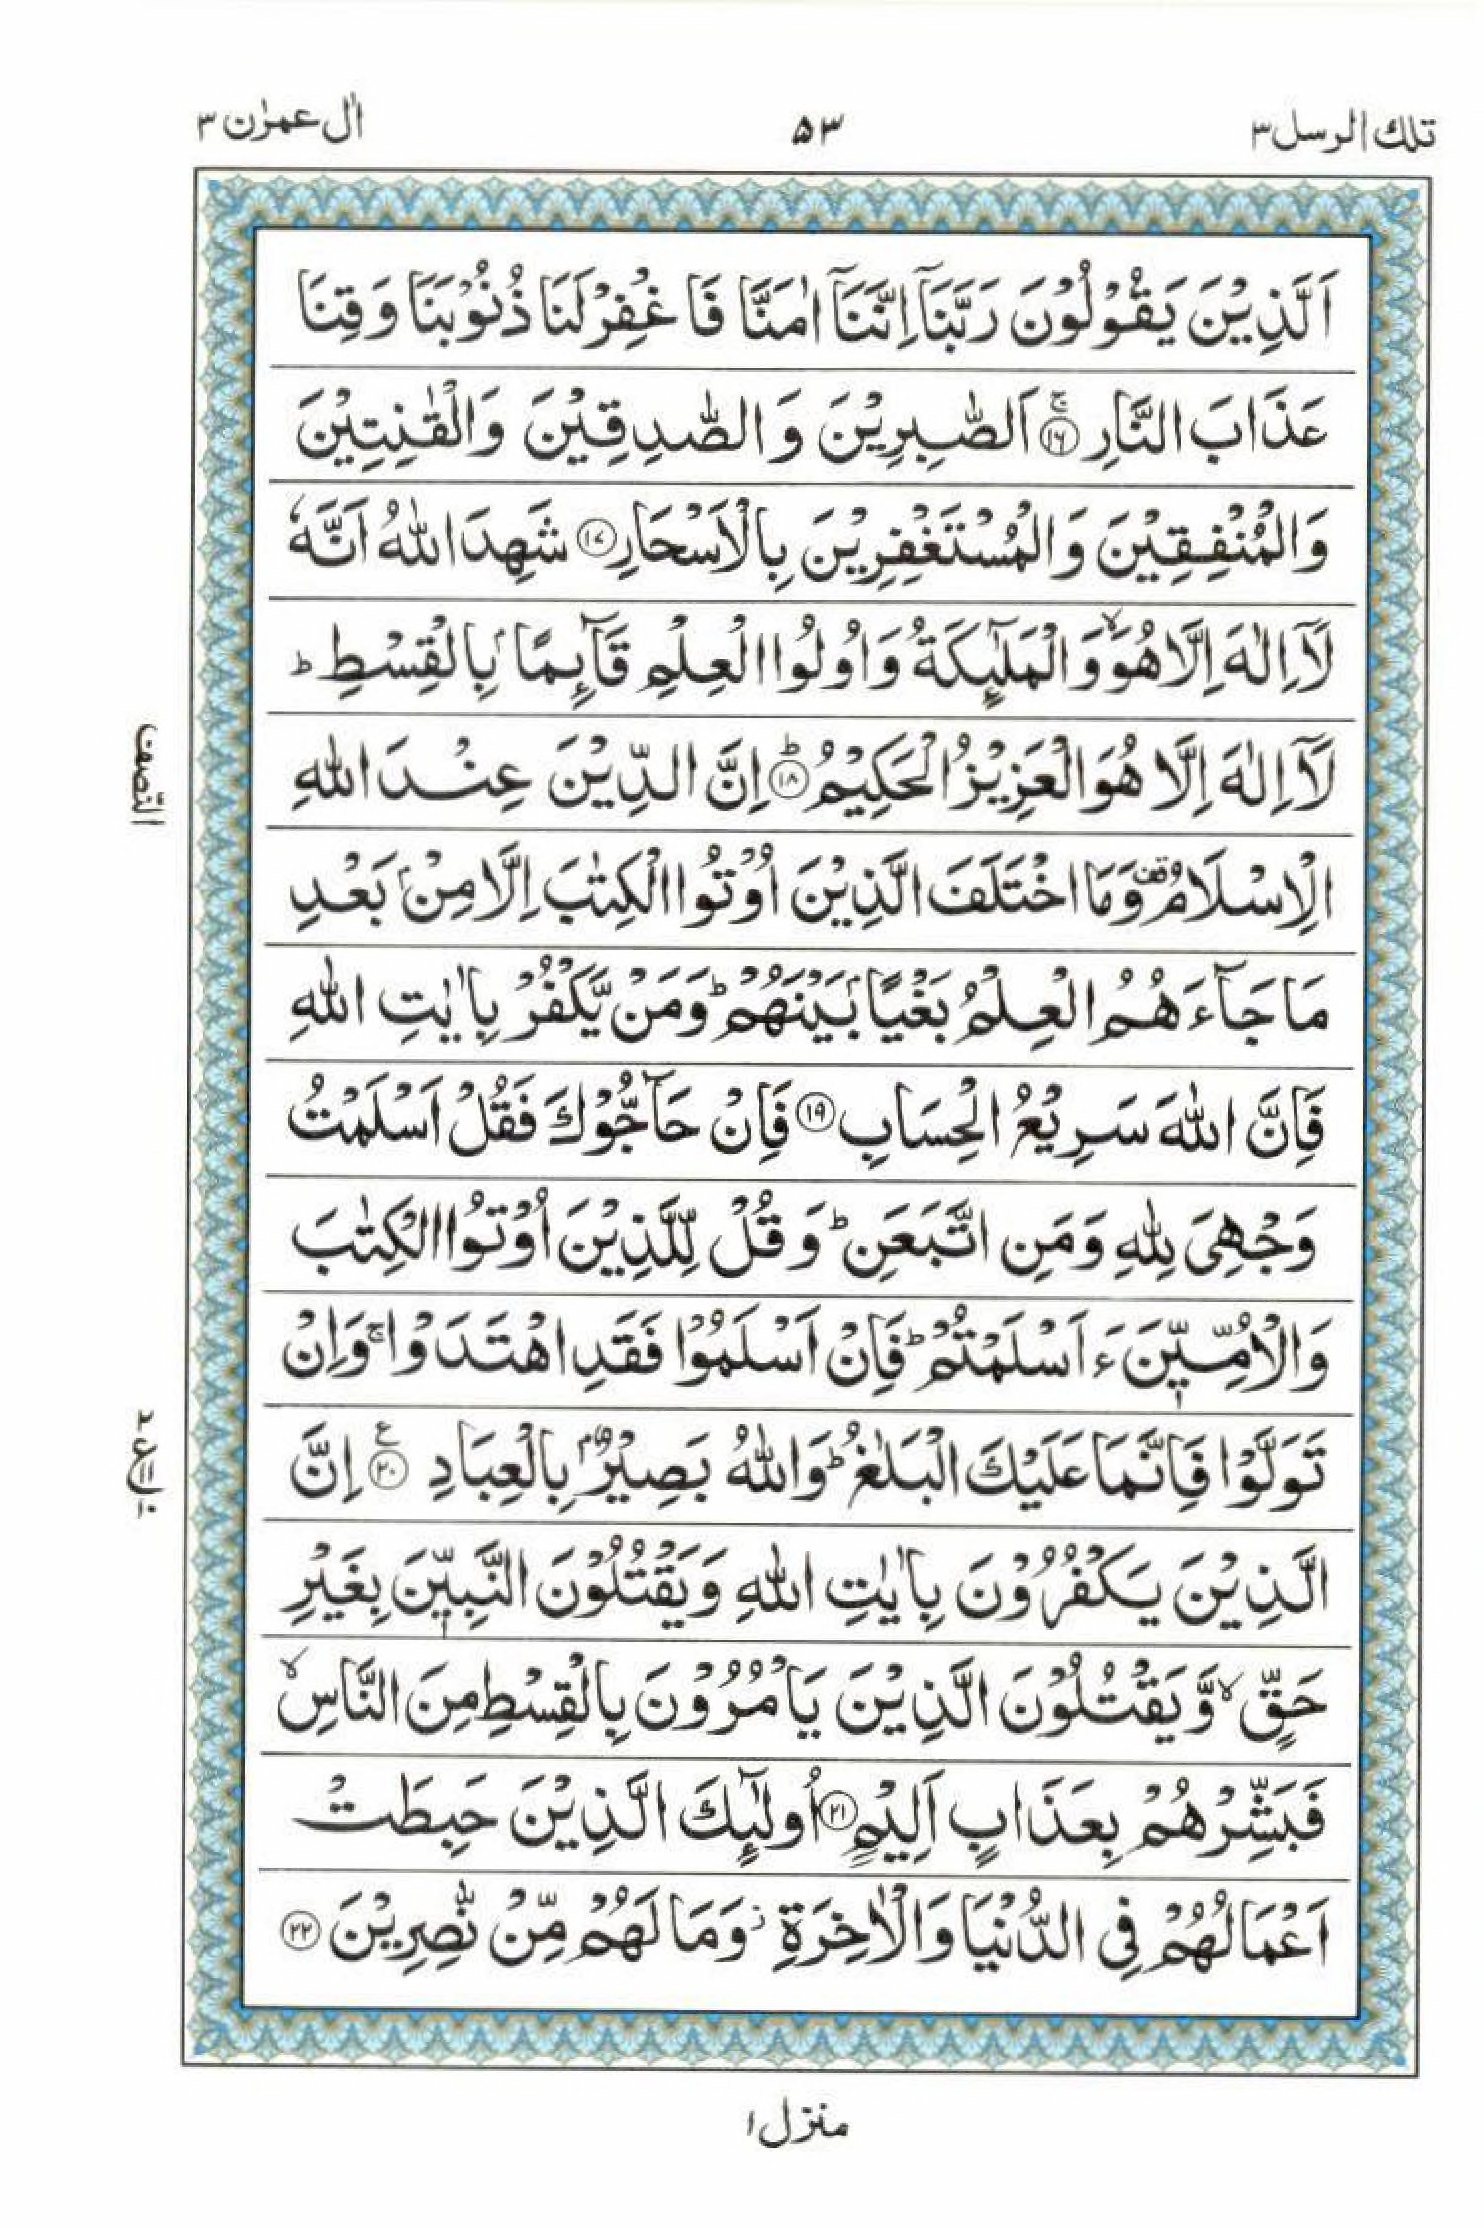 تلك الرسل ٣
۵۳
اٰل عمرٰن ٣
اَلَّذِيْنَ يَقُوْلُوْنَ رَبَّنَاۤ اِنَّنَاۤ اٰمَنَّا فَاغْفِرْلَنَا ذُنُوْبَنَا وَقِنَا
عَذَابَ النَّارِ ۚ‏﴿۱۶﴾ اَلصّٰبِرِيْنَ وَالصّٰدِقِيْنَ وَالْقٰنِتِيْنَ
وَالْمُنْفِقِيْنَ وَالْمُسْتَغْفِرِيْنَ بِالْاَسْحَارِ ﴿۱۷﴾ شَهِدَ اللّٰهُ اَنَّهٗ
لَاۤ اِلٰهَ اِلَّا هُوَ ۙ وَالْمَلٰٓئِكَةُ وَاُولُوا الْعِلْمِ قَآئِمًاۢ بِالْقِسْطِ ؕ
لَاۤ اِلٰهَ اِلَّا هُوَ الْعَزِيْزُ الْحَكِيْمُ ؕ﴿۱۸﴾ اِنَّ الدِّيْنَ عِنْدَ اللّٰهِ
الْاِسْلَامُ قف وَمَا اخْتَلَفَ الَّذِيْنَ اُوْتُوا الْكِتٰبَ اِلَّا مِنْۢ بَعْدِ
مَا جَآءَهُمُ الْعِلْمُ بَغْيًاۢ بَيْنَهُمْ ؕ وَمَنْ يَّكْفُرْ بِاٰيٰتِ اللّٰهِ
فَاِنَّ اللّٰهَ سَرِيْعُ الْحِسَابِ ﴿۱۹﴾ فَاِنْ حَآجُّوْكَ فَقُلْ اَسْلَمْتُ
وَجْهِىَ لِلّٰهِ وَمَنِ اتَّبَعَنِ ؕ وَقُلْ لِّلَّذِيْنَ اُوْتُوا الْكِتٰبَ
وَالْاُمِّيّٖنَ ءَاَسْلَمْتُمْ ؕ فَاِنْ اَسْلَمُوْا فَقَدِ اهْتَدَوْا ۚ وَاِنْ
تَوَلَّوْا فَاِنَّمَا عَلَيْكَ الْبَلٰغُ ؕ وَاللّٰهُ بَصِيْرٌۢ بِالْعِبَادِ ﴿۲۰﴾ ع اِنَّ
الَّذِيْنَ يَكْفُرُوْنَ بِاٰيٰتِ اللّٰهِ وَيَقْتُلُوْنَ النَّبِيّٖنَ بِغَيْرِ
حَقٍّ ۙ وَّيَقْتُلُوْنَ الَّذِيْنَ يَاْمُرُوْنَ بِالْقِسْطِ مِنَ النَّاسِ ۙ
فَبَشِّرْهُمْ بِعَذَابٍ اَلِيْمٍ ﴿۲۱﴾ اُولٰٓئِكَ الَّذِيْنَ حَبِطَتْ
اَعْمَالُهُمْ فِى الدُّنْيَا وَالْاٰخِرَةِ ز وَمَا لَهُمْ مِّنْ نّٰصِرِيْنَ ﴿۲۲﴾
النّصف
منزل ۱